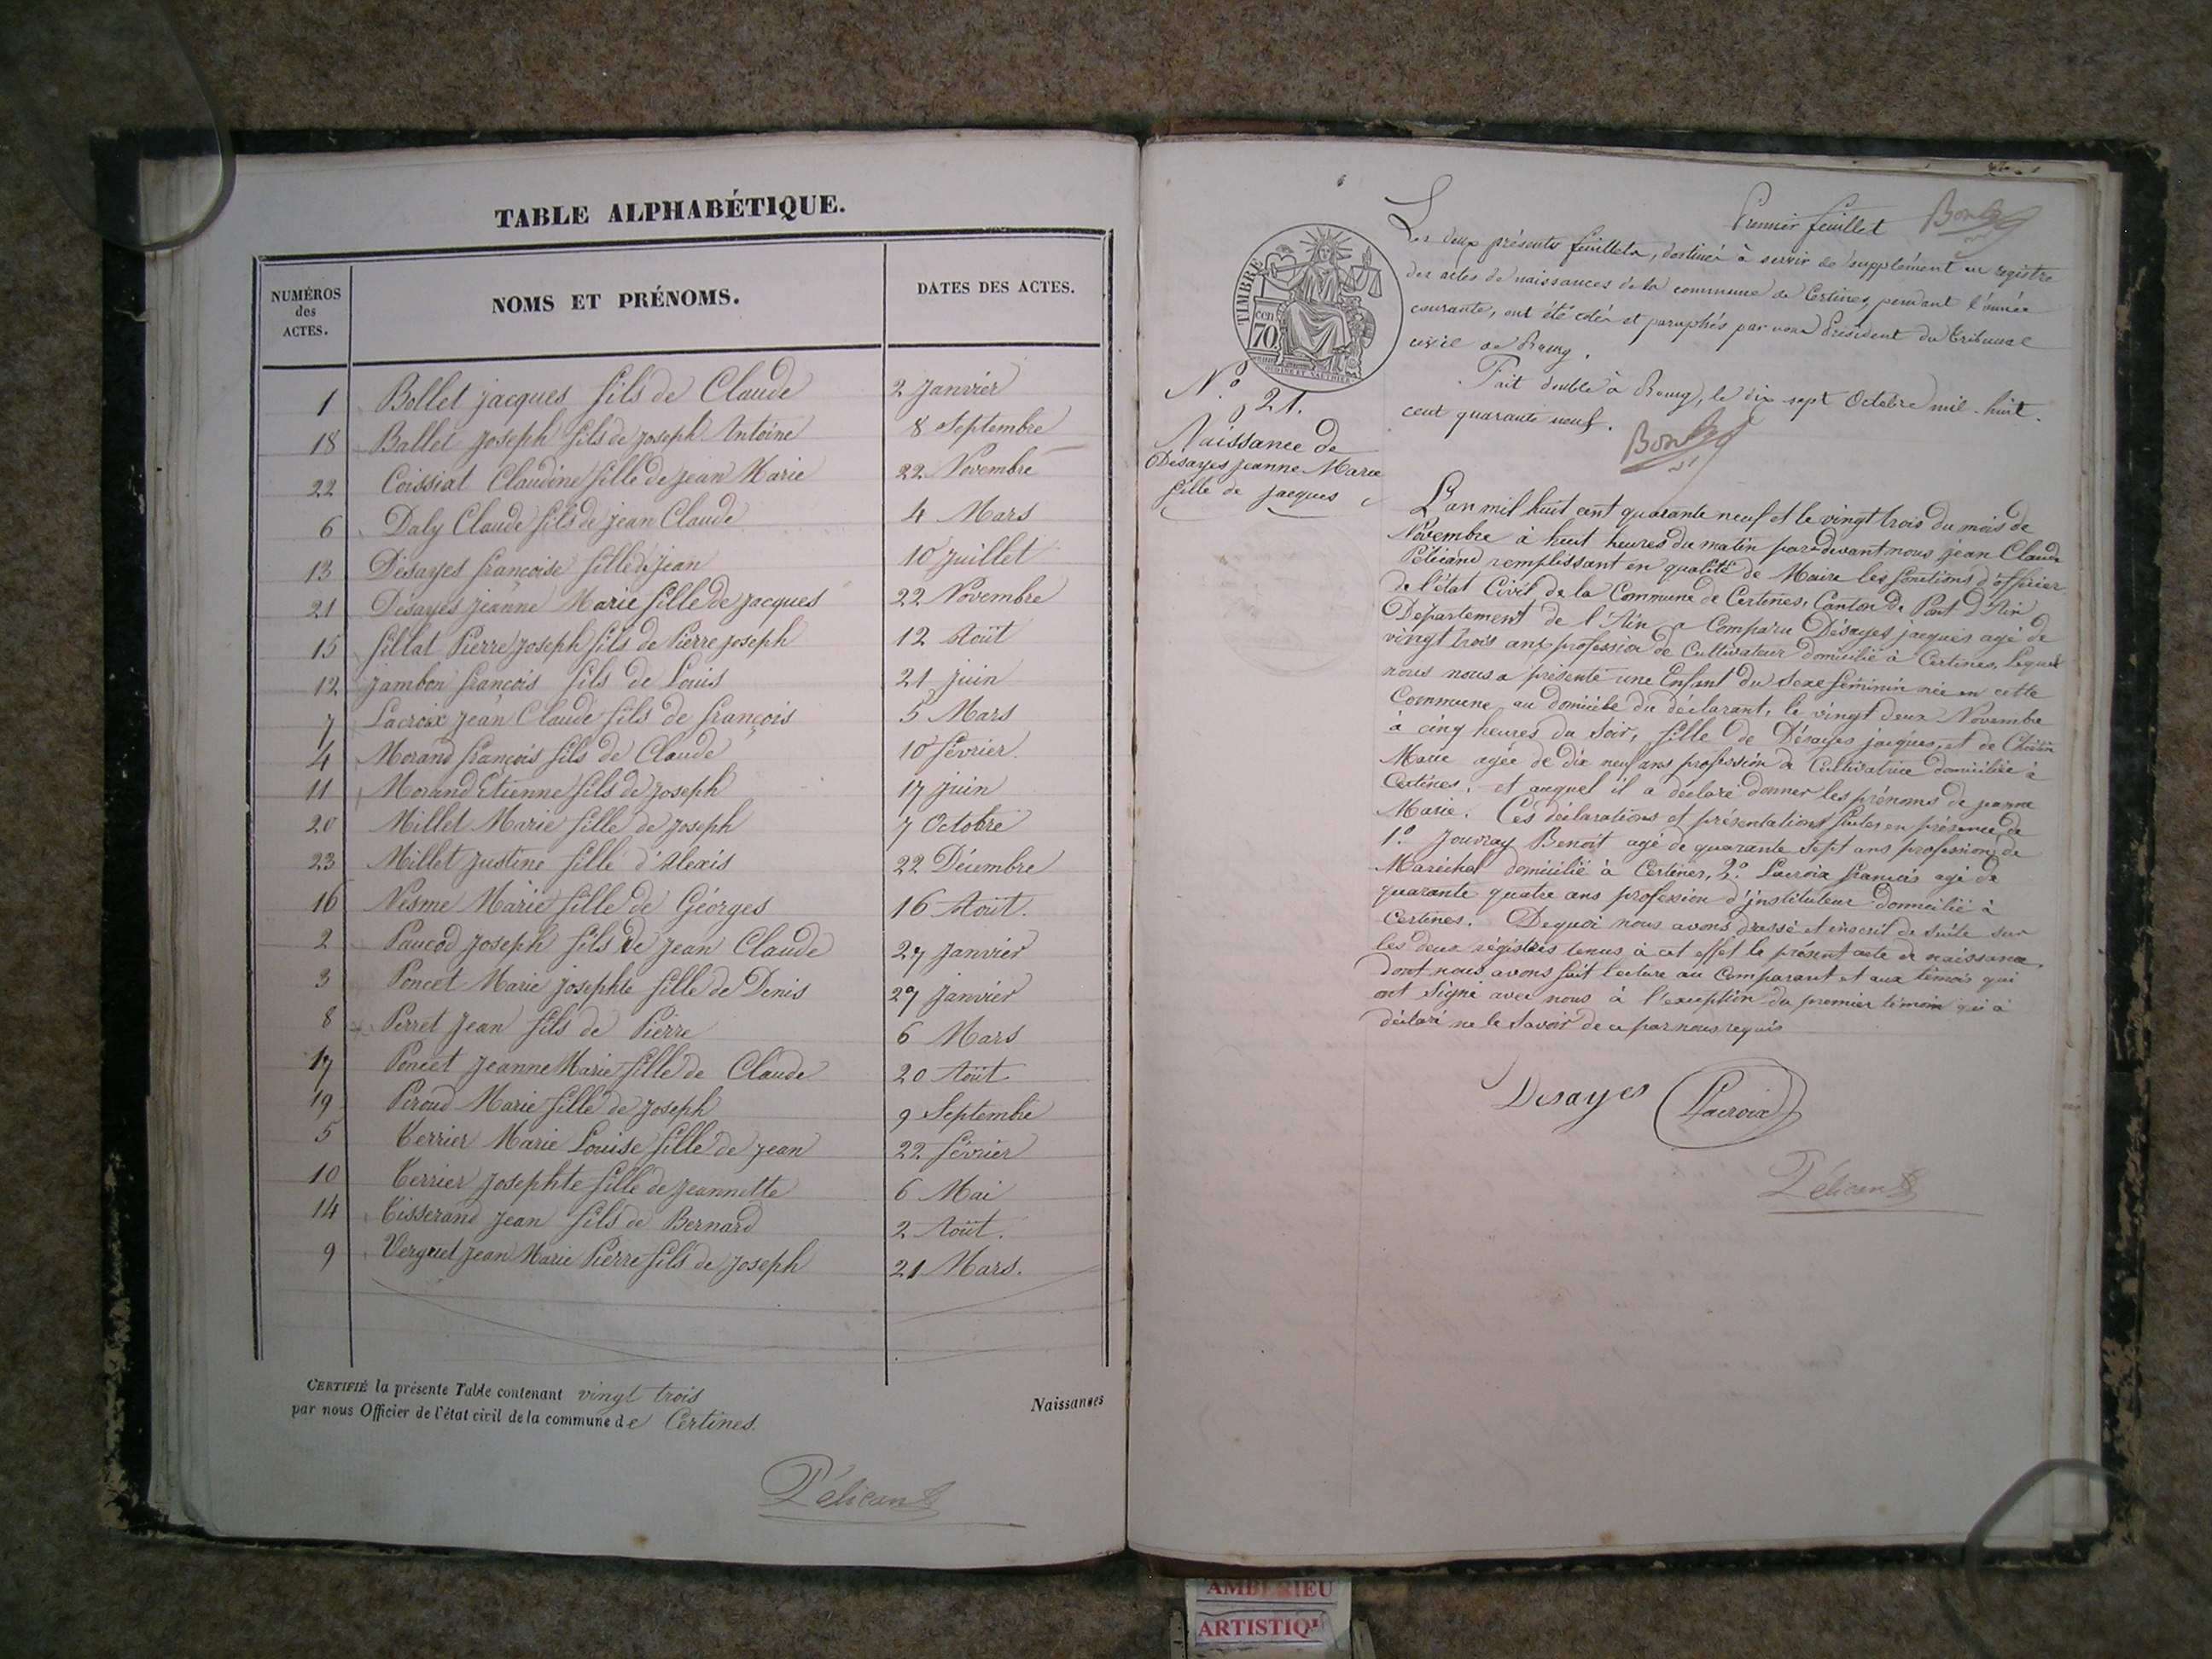 TABLE ALPHABÉTIQUE.
NUMÉROS des ACTES. NOMS ET PRÉNOMS. DATES DES ACTES.
1 Bollet jacques fils de Claude 2 Janvier
18 Ballet Joseph fils de Joseph Antoine 8 Septembre
22 Coissiat Claudine fille de Jean Marie 22 Novembre
6 Daly Claude fils de Jean Claude 4 Mars
13 Désayes françoise fille de Jean 10 Juillet
21 Désayes Jeanne Marie fille de Jacques 22 Novembre
15 fillat Pierre Joseph fils de Pierre Joseph 12 Août
12 Jambon françois fils de Louis 21 Juin
7 Lacroix Jean Claude fils de françois 5 Mars
4 Morand françois fils de Claude 10 février.
11 Morand Etienne fils de Joseph 17 Juin
20 Millet Marie fille de Joseph 7 Octobre
23 Millet Justine fille d'Alexis 22 Décembre
16 Nesme Marie fille de Géorges 16 Août.
2 Paucod Joseph fils de Jean Claude 27 Janvier
3 Poncet Marie Josephte fille de Denis 29 Janvier
8 Perret Jean fils de Pierre 6 Mars
17 Poncet Jeanne Marie fille de Claude 20 Août
19 Piroud Marie fille de Joseph 9 Septembre
5 Terrier Marie Louise fille de Jean 22 février
10 Terrier Josephte fille de Jeannette 6 Mai
14 Tisserand Jean fils de Bernard 2 Août.
9 Verguet Jean Marie Pierre fils de Joseph 21 Mars.
CERTIFIÉ la présente Table contenant vingt trois Naissances
par nous Officier de l'état civil de la commune de Certines.
Pélicand
Premier feuillet
Les deux présents feuillets, destinés à servir de supplément au registre
des actes de naissances de la commune de Certines, pendant l'année
courante, ont été cotés et paraphés par nous Président du tribunal
civil de Bourg.
Fait double à Bourg, le dix sept Octobre mil-huit-
cent quarante neuf.
TIMBRE
cen
70.
N.° 21.
Naissance de
Désayes Jeanne Marie
fille de Jacques
L'an mil huit cent quarante neuf et le vingt trois du mois de
Novembre à huit heures du matin pardevant nous Jean Claude
Pélicand remplissant en qualité de Maire les fonctions d'officier
de l'état Civil de la Commune de Certines, Canton de Pont D'Ain
Département de l'Ain a Comparu Désayes Jacques agé de
vingt trois ans profession de Cultivateur domicilié à Certines, lequel
nous nous a présenté une Enfant du Sexe féminin née en cette
Commune au domicile du déclarant, le vingt deux Novembre
à cinq heures du Soir, fille de Désayes Jacques, et de
Marie agée de dix neuf ans profession de Cultivatrice domiciliée à
Certines, et auquel il a déclaré donner les prénoms de Jeanne
Marie. Ces déclarations et présentations faites en présence de
1.° Jouvray Benoît agé de quarante sept ans profession de
Maréchal domicilié à Certines, 2.° Lacroix françois agé de
quarante quatre ans profession d'instituteur domicilié à
Certines. Dequoi nous avons drassé et inscrit de suite sur
les deux régistres tenus à cet effet le présent acte de naissance,
dont nous avons fait lecture au Comparant et aux témois qui
ont Signé avec nous à l'exception du premier témoin qui à
déclaré ne le Savoir de ce par nous requis
Désayes Lacroix
Pélicand
AMBERIEU
ARTISTIQ